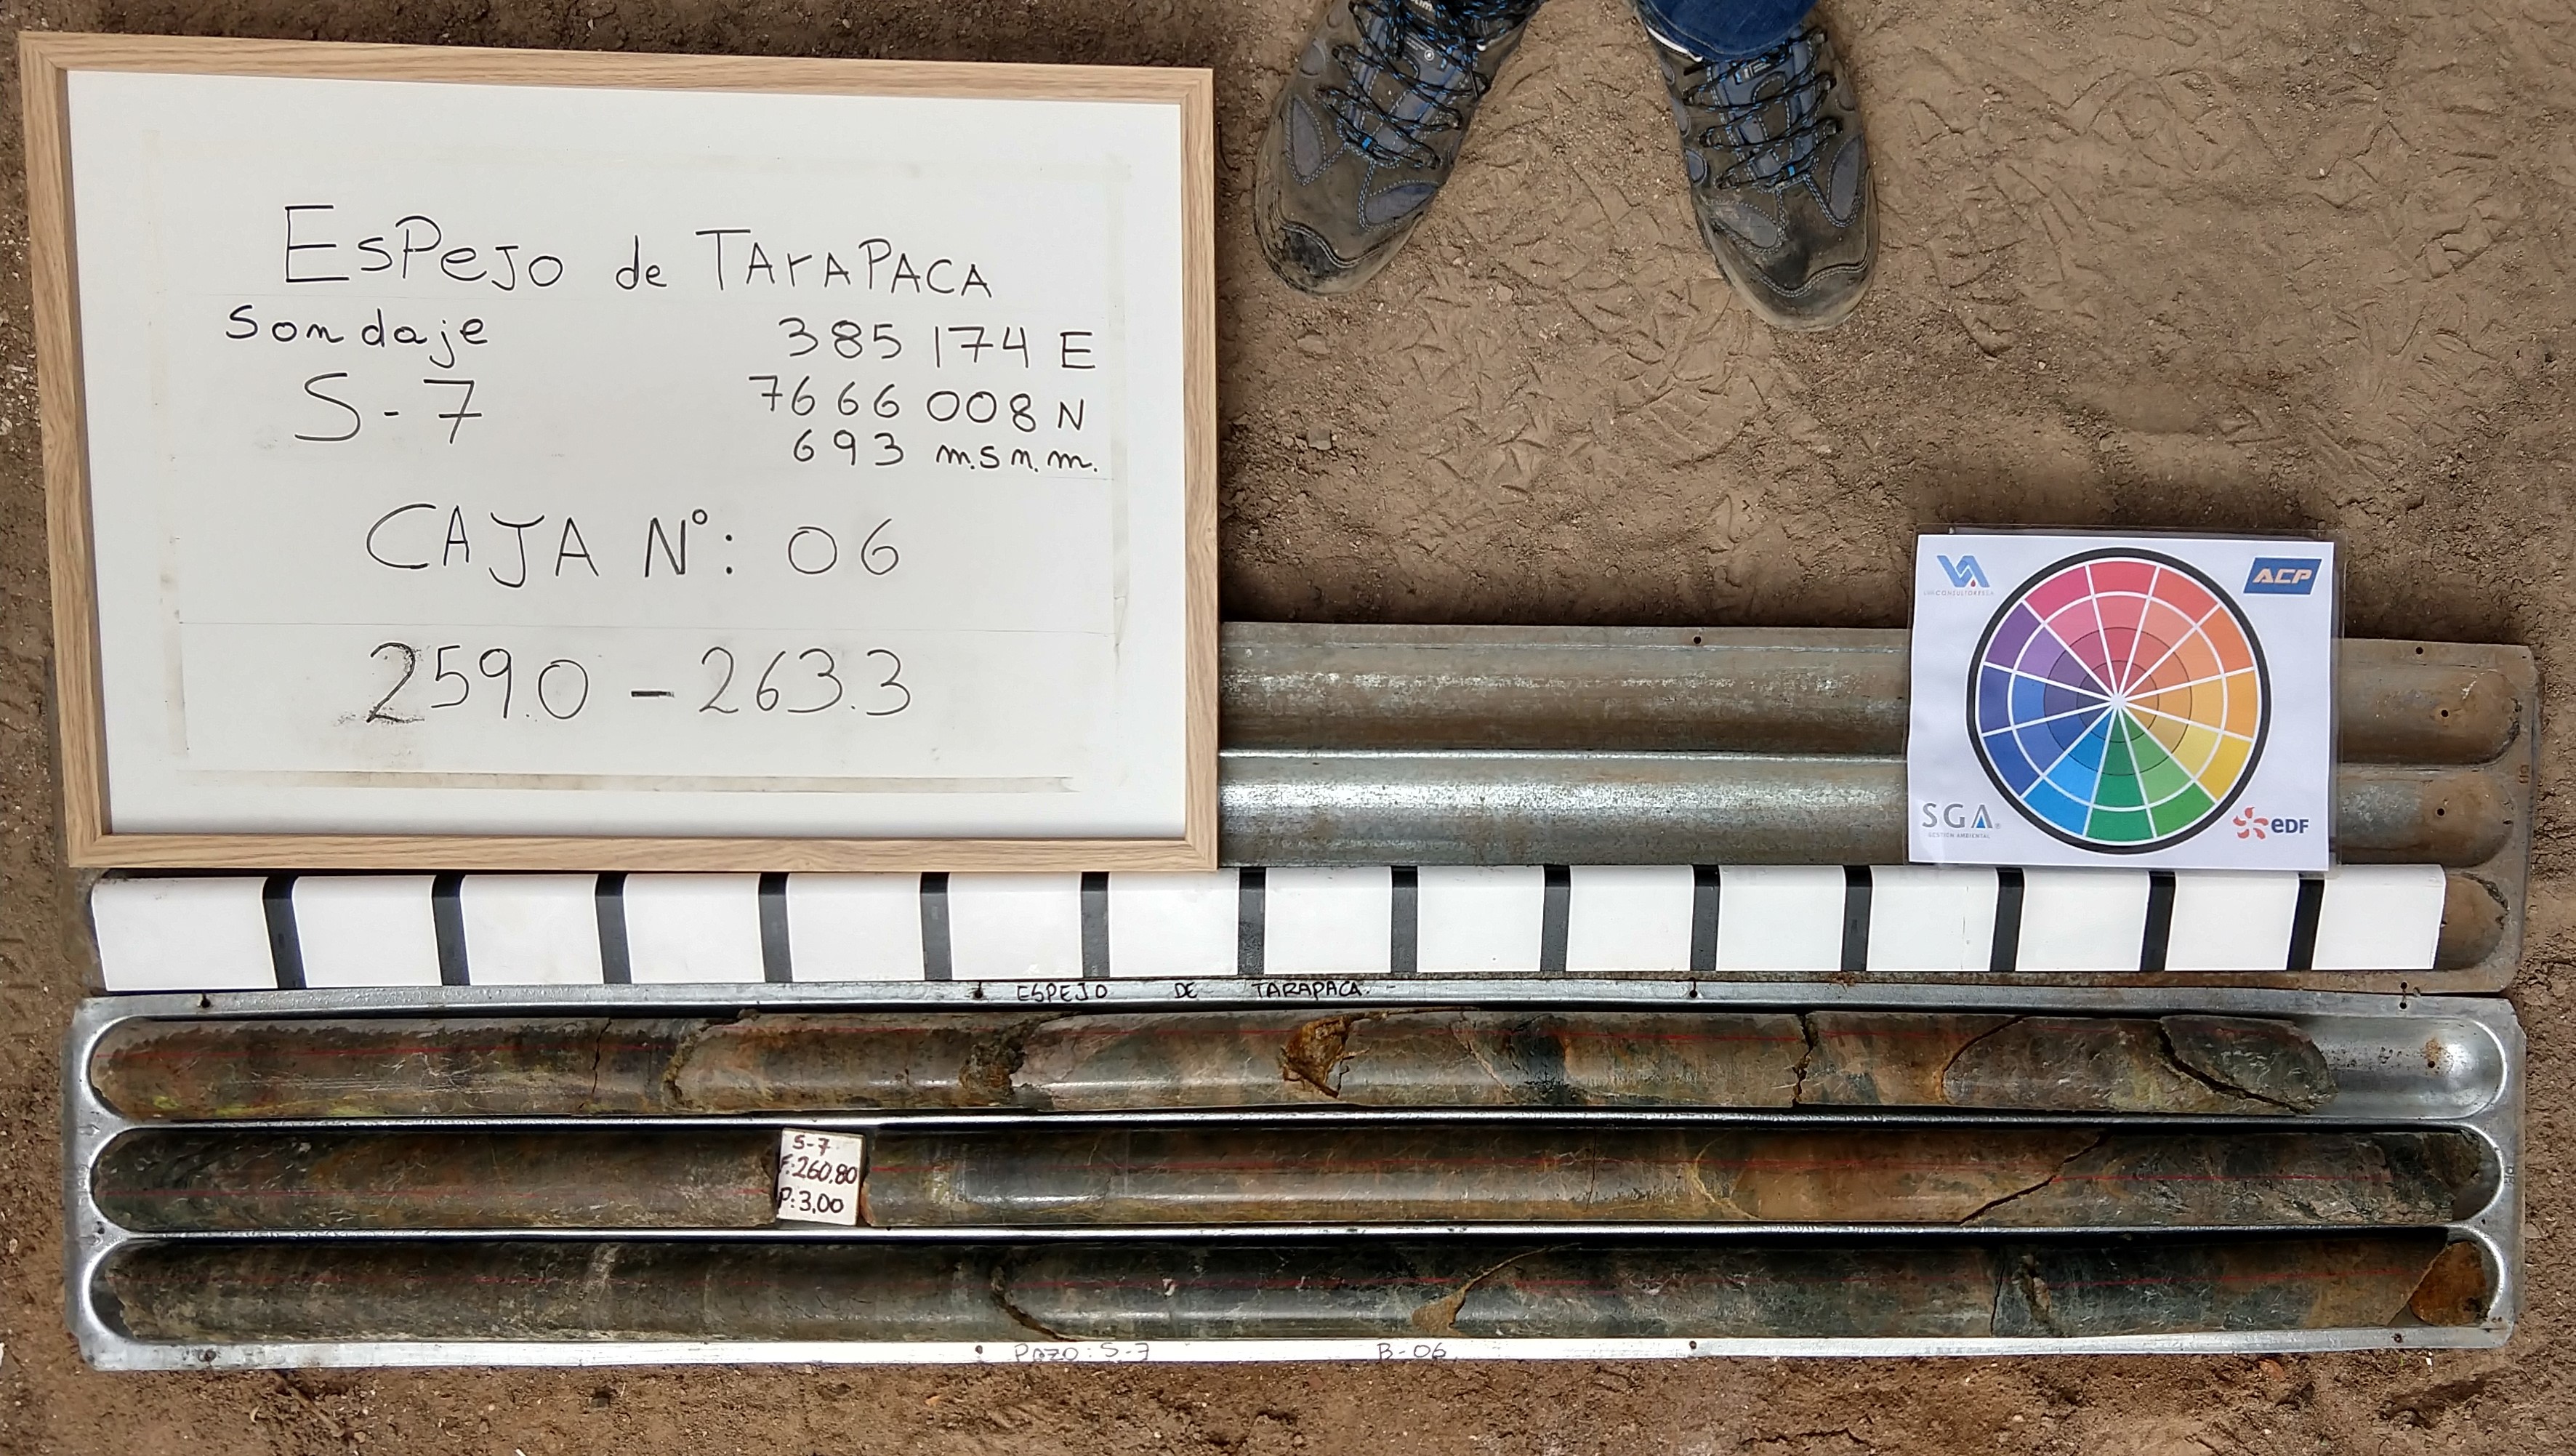 EsPeJo de TArAPACA
Sondaje
385 174 E
S-7
7666 008 N
693 m.s.n.m.
CAJA N°: 06
259.0 - 263.3
VA
CONSULTORES
ACP
SGA
GESTIÓN AMBIENTAL
eDF
ESPEJO DE TARAPACA.-
S-7
F:260.80
P:3,00
Pozo: S-7 B-06